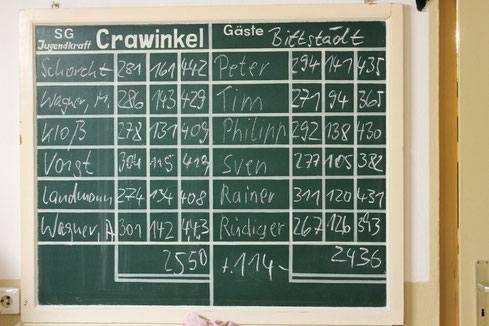 SG Jugendkraft Crawinkel Gäste Bittstädt
Schorcht 281 161 442 Peter 294 141 435
Wagner, M. 286 143 429 Tim 271 94 365
Kloß 278 131 409 Philipp 292 138 430
Voigt 304 115 419 Sven 277 105 382
Landmann 274 134 408 Rainer 311 120 431
Wagner, A 301 142 443 Rüdiger 267 126 393
2550 +114- 2436